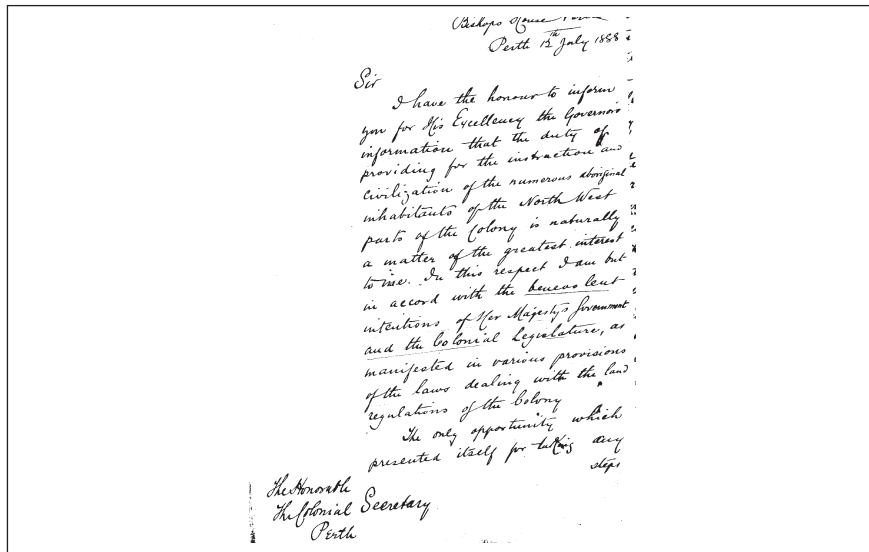 Bishops House
Perth 12th July 1888
Sir
I have the honour to inform
you for His Excellency the Governors
information that the duty of
providing for the instruction and
civilization of the numerous aboriginal
inhabitants of the North West
parts of the Colony is naturally
a matter of the greatest interest
to me. In this respect I am but
in accord with the benevolent
intentions of Her Majestys Government
and the Colonial Legislature, as
manifested in various provisions
of the laws dealing with the land
regulations of the Colony
The only opportunity which
presented itself for taking any
steps
The Honorable
The Colonial Secretary
Perth